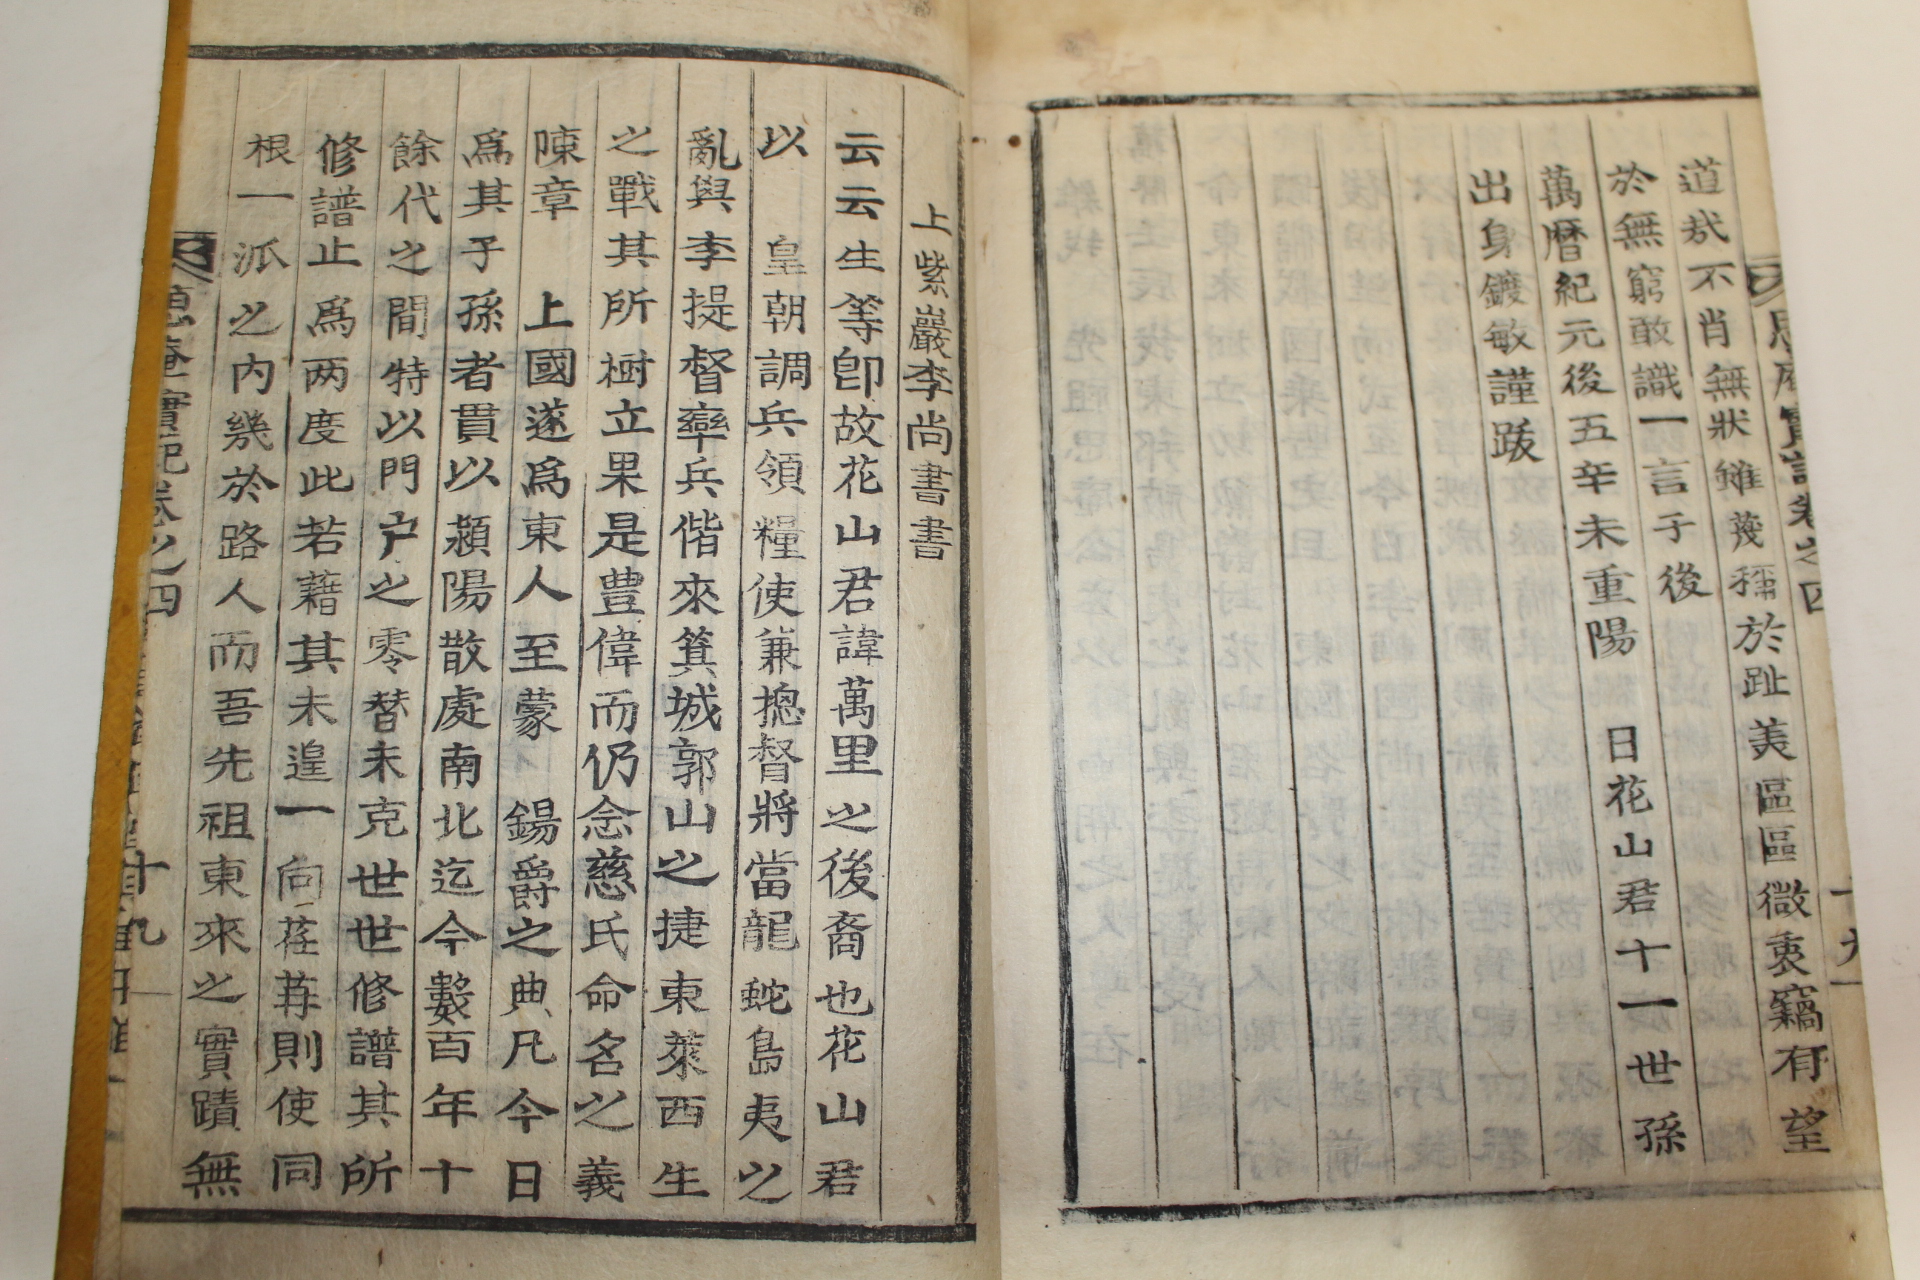 道哉不肖無狀雖蔑稱於趾美區區微衷竊有望
於無窮敢識一言于後
萬曆紀元後五辛未重陽 日花山君十一世孫
出身鑊敏謹跋
上紫巖李尚書書
云云生等卽故花山君諱萬里之後裔也花山君
以 皇朝調兵領糧使兼摠督將當龍蛇島夷之
亂與李提督率兵偕來箕城郭山之捷東萊西生
之戰其所樹立果是豊偉而仍念慈氏命名之義
陳章 上國遂爲東人至蒙 錫爵之典凡今日
爲其子孫者貫以潁陽散處南北迄今數百年十
餘代之間特以門户之零替未克世世修譜其所
修譜止爲两度此若藉其未遑一向荏苒則使同
根一派之内幾於路人而吾先祖東來之實蹟無
思庵實記卷之四
十九